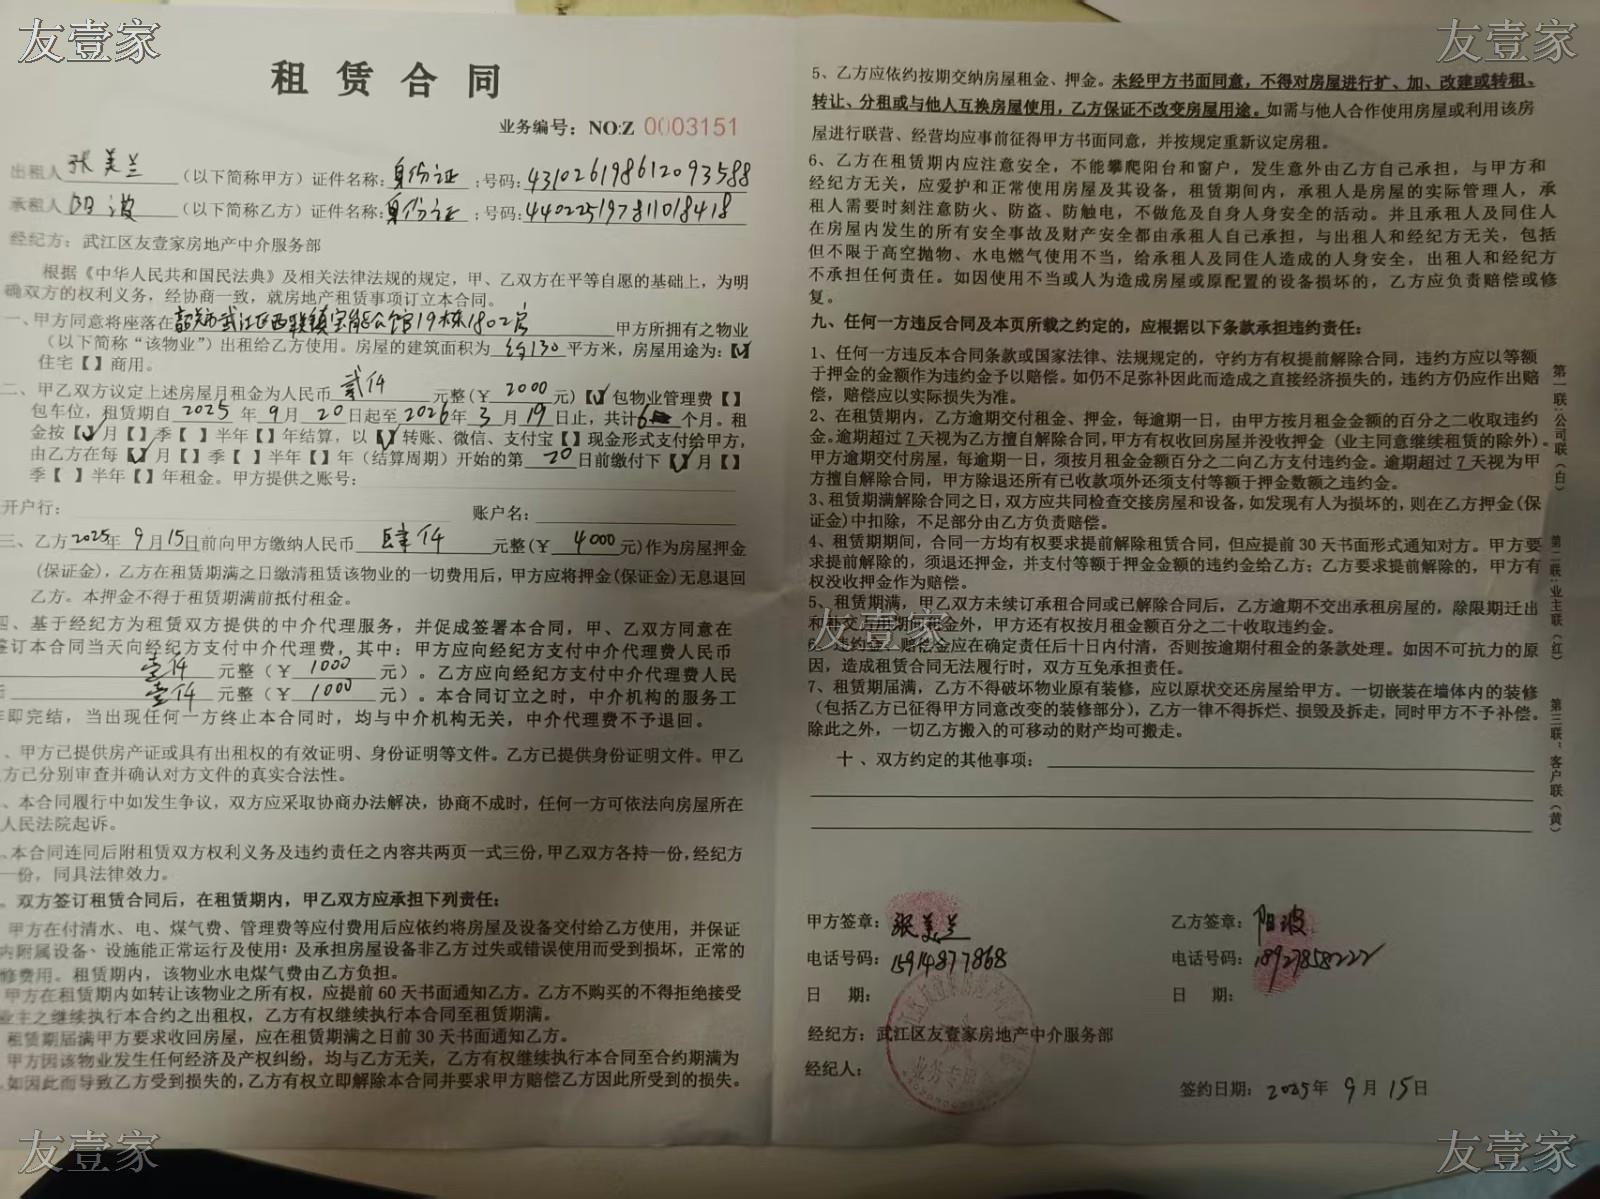 友壹家
友壹家
租赁合同
业务编号：NO:Z 0003151
出租人 张美兰 （以下简称甲方）证件名称：身份证；号码：431026198612093588
承租人 阳波 （以下简称乙方）证件名称：身份证；号码：440225197811018418
经纪方：武江区友壹家房地产中介服务部
根据《中华人民共和国民法典》及相关法律法规的规定，甲、乙双方在平等自愿的基础上，为明
确双方的权利义务，经协商一致，就房地产租赁事项订立本合同。
一、甲方同意将座落在韶关市武江区西联镇宝能公馆19栋1802房 甲方所拥有之物业
（以下简称“该物业”）出租给乙方使用。房屋的建筑面积为 约130 平方米，房屋用途为：【✓】
住宅【 】商用。
二、甲乙双方议定上述房屋月租金为人民币 贰仟 元整(￥ 2000 元)【✓】包物业管理费【 】
包车位，租赁期自 2025 年 9 月 20 日起至 2026 年 3 月 19 日止，共计 6 个月。租
金按【✓】月【 】季【 】半年【 】年结算，以【✓】转账、微信、支付宝【 】现金形式支付给甲方，
由乙方在每【✓】月【 】季【 】半年【 】年（结算周期）开始的第 20 日前缴付下【✓】月【 】
季【 】半年【 】年租金。甲方提供之账号：
开户行： 账户名：
三、乙方 2025 年 9 月 15 日前向甲方缴纳人民币 肆仟 元整(￥ 4000 元)作为房屋押金
(保证金)，乙方在租赁期满之日缴清租赁该物业的一切费用后，甲方应将押金(保证金)无息退回
乙方。本押金不得于租赁期满前抵付租金。
四、基于经纪方为租赁双方提供的中介代理服务，并促成签署本合同，甲、乙双方同意在
签订本合同当天向经纪方支付中介代理费，其中：甲方应向经纪方支付中介代理费人民币
壹仟 元整（￥ 1000 元）。乙方应向经纪方支付中介代理费人民
壹仟 元整（￥ 1000 元）。本合同订立之时，中介机构的服务工
作即完结，当出现任何一方终止本合同时，均与中介机构无关，中介代理费不予退回。
、甲方已提供房产证或具有出租权的有效证明、身份证明等文件。乙方已提供身份证明文件。甲乙
方已分别审查并确认对方文件的真实合法性。
、本合同履行中如发生争议，双方应采取协商办法解决，协商不成时，任何一方可依法向房屋所在
人民法院起诉。
、本合同连同后附租赁双方权利义务及违约责任之内容共两页一式三份，甲乙双方各持一份，经纪方
一份，同具法律效力。
。双方签订租赁合同后，在租赁期内，甲乙双方应承担下列责任：
甲方在付清水、电、煤气费、管理费等应付费用后应依约将房屋及设备交付给乙方使用，并保证
内附属设备、设施能正常运行及使用；及承担房屋设备非乙方过失或错误使用而受到损坏，正常的
修费用。租赁期内，该物业水电煤气费由乙方负担。
甲方在租赁期内如转让该物业之所有权，应提前60天书面通知乙方。乙方不购买的不得拒绝接受
业主之继续执行本合约之出租权，乙方有权继续执行本合同至租赁期满。
租赁期届满甲方要求收回房屋，应在租赁期满之日前30天书面通知乙方。
甲方因该物业发生任何经济及产权纠纷，均与乙方无关，乙方有权继续执行本合同至合约期满为
。如因此而导致乙方受到损失的，乙方有权立即解除本合同并要求甲方赔偿乙方因此所受到的损失。
5、乙方应依约按期交纳房屋租金、押金。未经甲方书面同意，不得对房屋进行扩、加、改建或转租、
转让、分租或与他人互换房屋使用，乙方保证不改变房屋用途。如需与他人合作使用房屋或利用该房
屋进行联营、经营均应事前征得甲方书面同意，并按规定重新议定房租。
6、乙方在租赁期内应注意安全，不能攀爬阳台和窗户，发生意外由乙方自己承担，与甲方和
经纪方无关，应爱护和正常使用房屋及其设备，租赁期间内，承租人是房屋的实际管理人，承
租人需要时刻注意防火、防盗、防触电，不做危及自身人身安全的活动。并且承租人及同住人
在房屋内发生的所有安全事故及财产安全都由承租人自己承担，与出租人和经纪方无关，包括
但不限于高空抛物、水电燃气使用不当，给承租人及同住人造成的人身安全，出租人和经纪方
不承担任何责任。如因使用不当或人为造成房屋或原配置的设备损坏的，乙方应负责赔偿或修
复。
九、任何一方违反合同及本页所载之约定的，应根据以下条款承担违约责任：
1、任何一方违反本合同条款或国家法律、法规规定的，守约方有权提前解除合同，违约方应以等额
于押金的金额作为违约金予以赔偿。如仍不足弥补因此而造成之直接经济损失的，违约方仍应作出赔
偿，赔偿应以实际损失为准。
2、在租赁期内，乙方逾期交付租金、押金，每逾期一日，由甲方按月租金金额的百分之二收取违约
金。逾期超过7天视为乙方擅自解除合同，甲方有权收回房屋并没收押金（业主同意继续租赁的除外）。
甲方逾期交付房屋，每逾期一日，须按月租金金额百分之二向乙方支付违约金。逾期超过7天视为甲
方擅自解除合同，甲方除退还所有已收款项外还须支付等额于押金数额之违约金。
3、租赁期满解除合同之日，双方应共同检查交接房屋和设备，如发现有人为损坏的，则在乙方押金(保
证金)中扣除，不足部分由乙方负责赔偿。
4、租赁期期间，合同一方均有权要求提前解除租赁合同，但应提前30天书面形式通知对方。甲方要
求提前解除的，须退还押金，并支付等额于押金金额的违约金给乙方；乙方要求提前解除的，甲方有
权没收押金作为赔偿。
5、租赁期满，甲乙双方未续订承租合同或已解除合同后，乙方逾期不交出承租房屋的，除限期迁出
和补交占用期间租金外，甲方还有权按月租金额百分之二十收取违约金。
友壹家
6、违约金、赔偿金应在确定责任后十日内付清，否则按逾期付租金的条款处理。如因不可抗力的原
因，造成租赁合同无法履行时，双方互免承担责任。
7、租赁期届满，乙方不得破坏物业原有装修，应以原状交还房屋给甲方。一切嵌装在墙体内的装修
（包括乙方已征得甲方同意改变的装修部分），乙方一律不得拆烂、损毁及拆走，同时甲方不予补偿。
除此之外，一切乙方搬入的可移动的财产均可搬走。
十、双方约定的其他事项：
第一联：公司联（白）
第二联：业主联（红）
第三联：客户联（黄）
甲方签章：张美兰
乙方签章：阳波
电话号码：15914877868
电话号码：18927858222
日 期：
日 期：
经纪方：武江区友壹家房地产中介服务部
经纪人：
业务专用
签约日期：2025年 9 月 15日
友壹家
友壹家